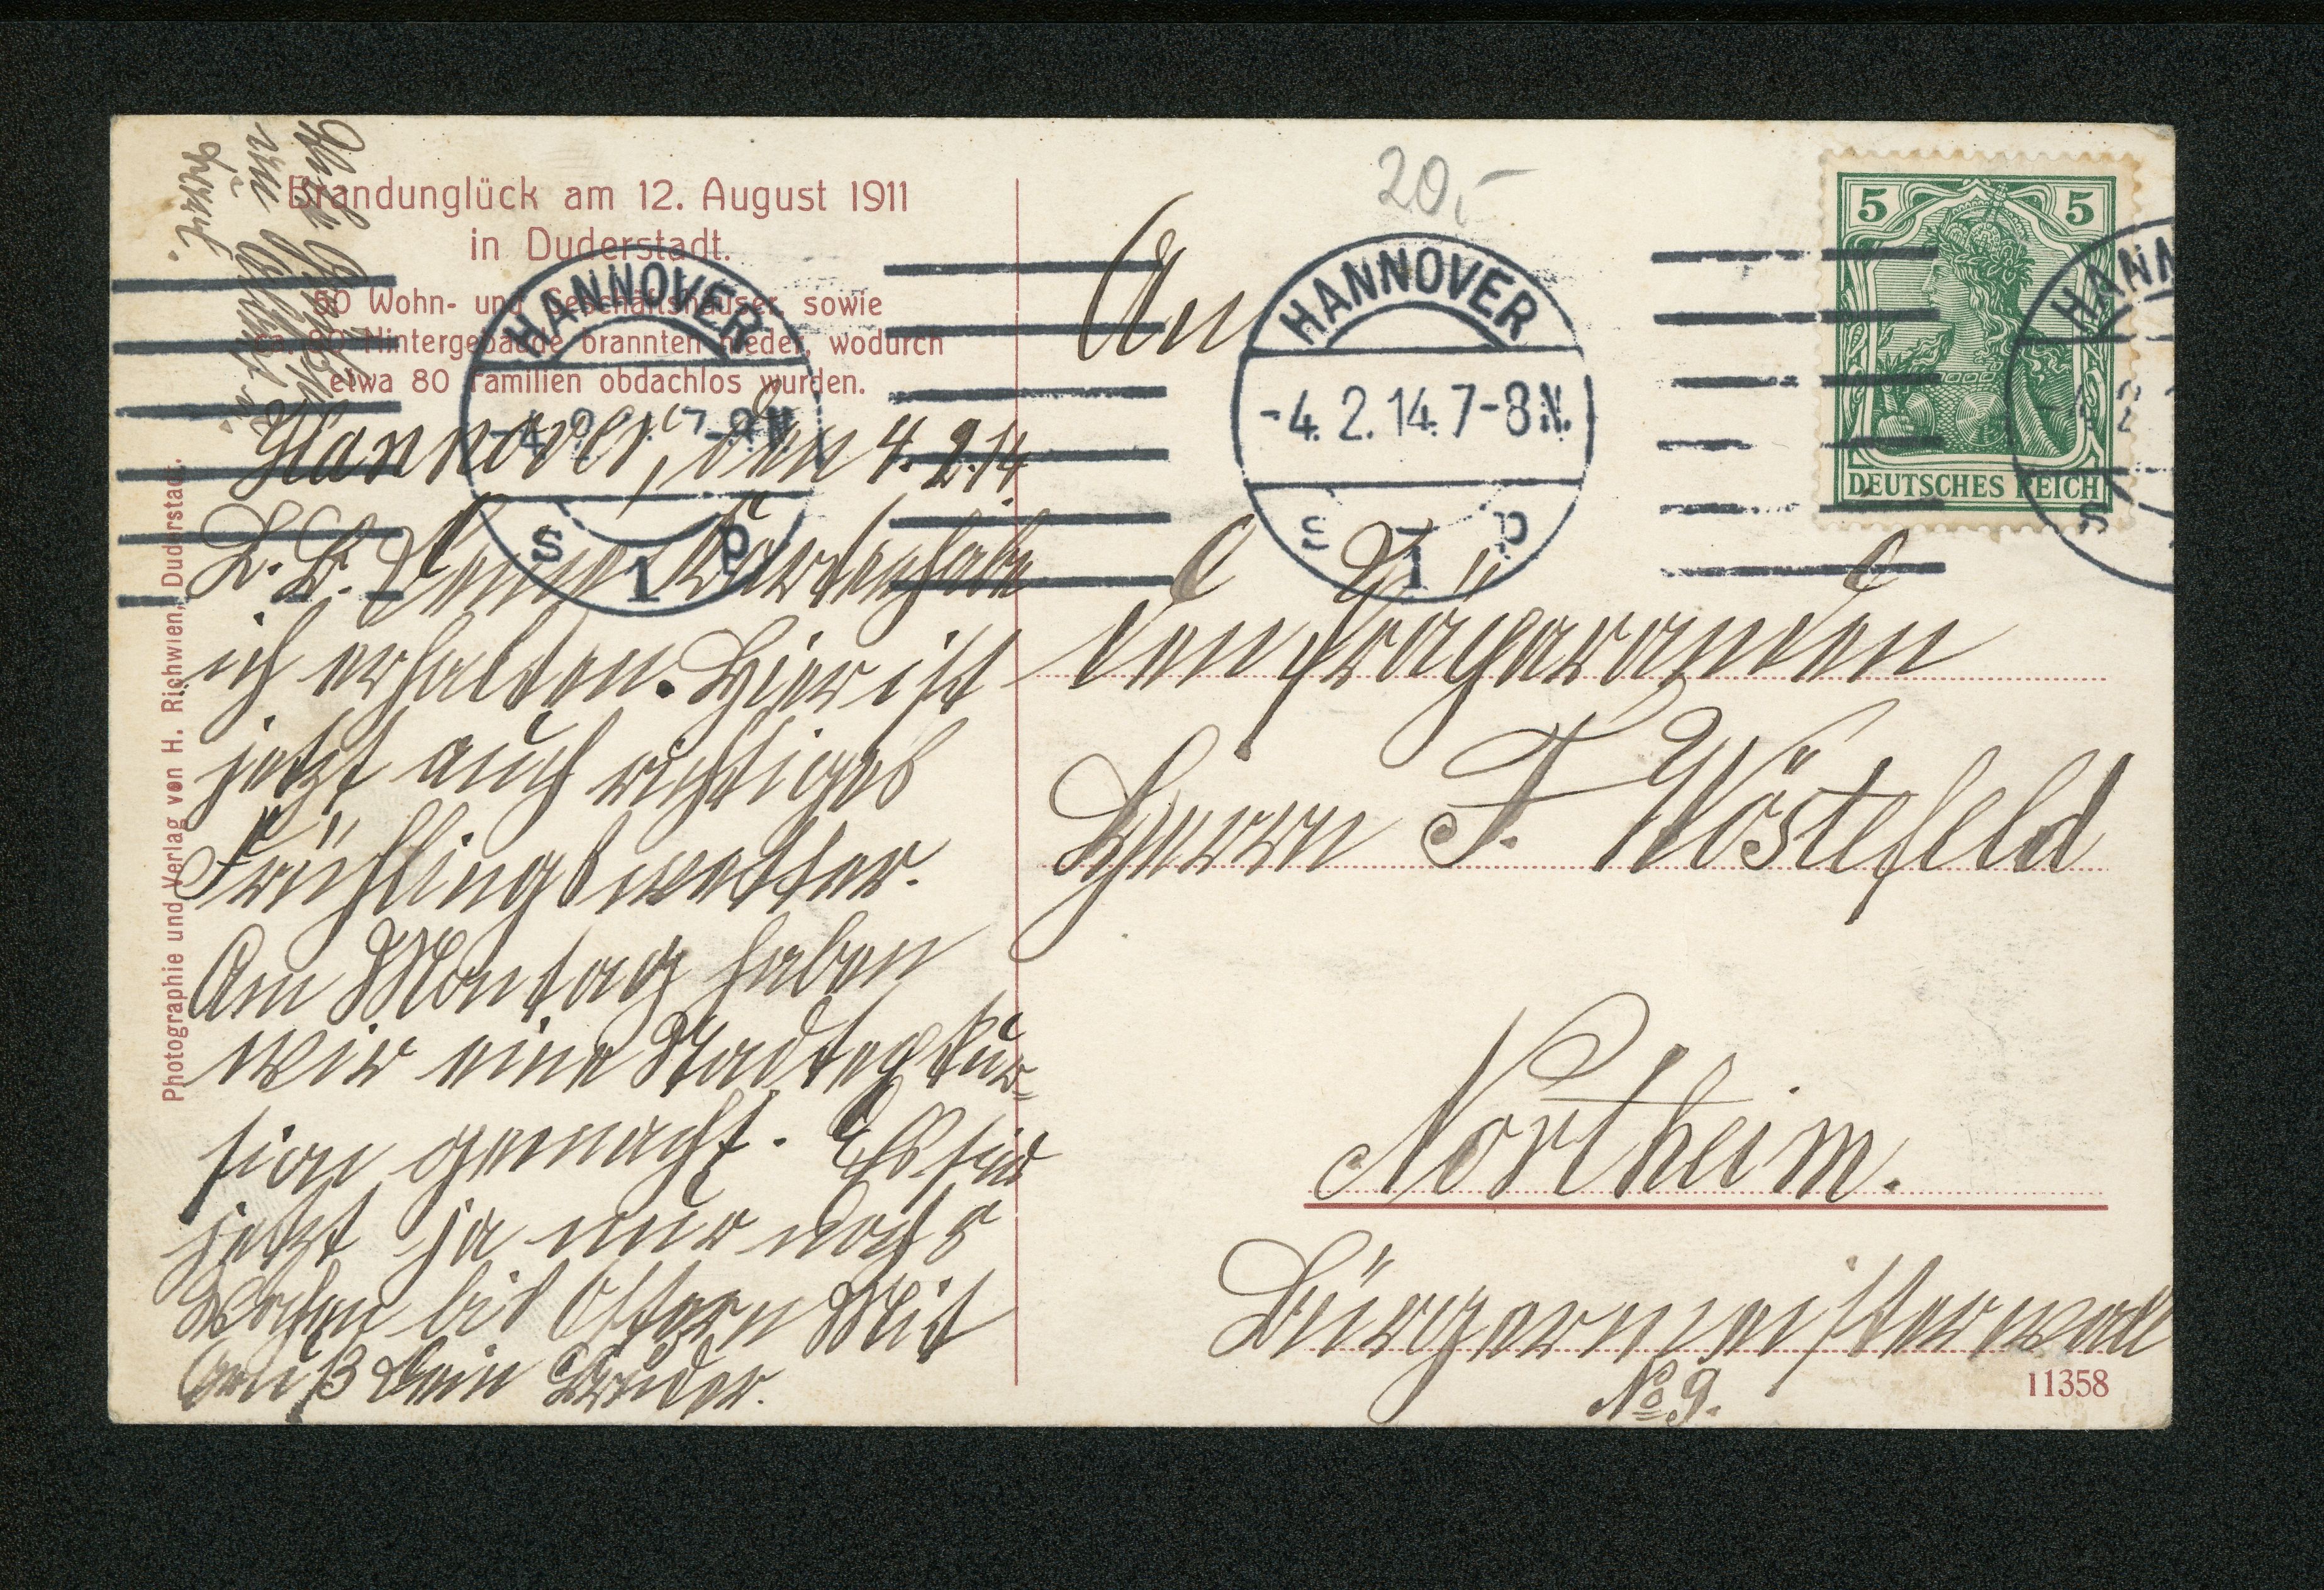 Brandunglück am 12. August 1911
in Duderstadt.
60 Wohn- und Geschäftshäuser, sowie
ca. 80 Hintergebäude brannten nieder, wodurch
etwa 80 Familien obdachlos wurden.
Photographie und Verlag von H. Richwien, Duderstadt.
Hannover, den 4.2.14.
L. B. Deine Karten habe
ich erhalten. Hier ist
jetzt auch richtiges
Frühlingswetter.
Am Montag haben
wir eine Stadtexkur=
sion gemacht. Es sind
jetzt ja nur noch 8
Wochen bis Ostern Mit
Gruß Dein Bruder.
20,-
An
den Präparanden
Herrn F. Wöstefeld
Northeim.
Bürgermeisterwall
No 9.
11358
5 5
DEUTSCHES REICH
HANNOVER
-4.2.14.7-8N.
s 1 p
HANNOVER
s 1 p
HANN
s